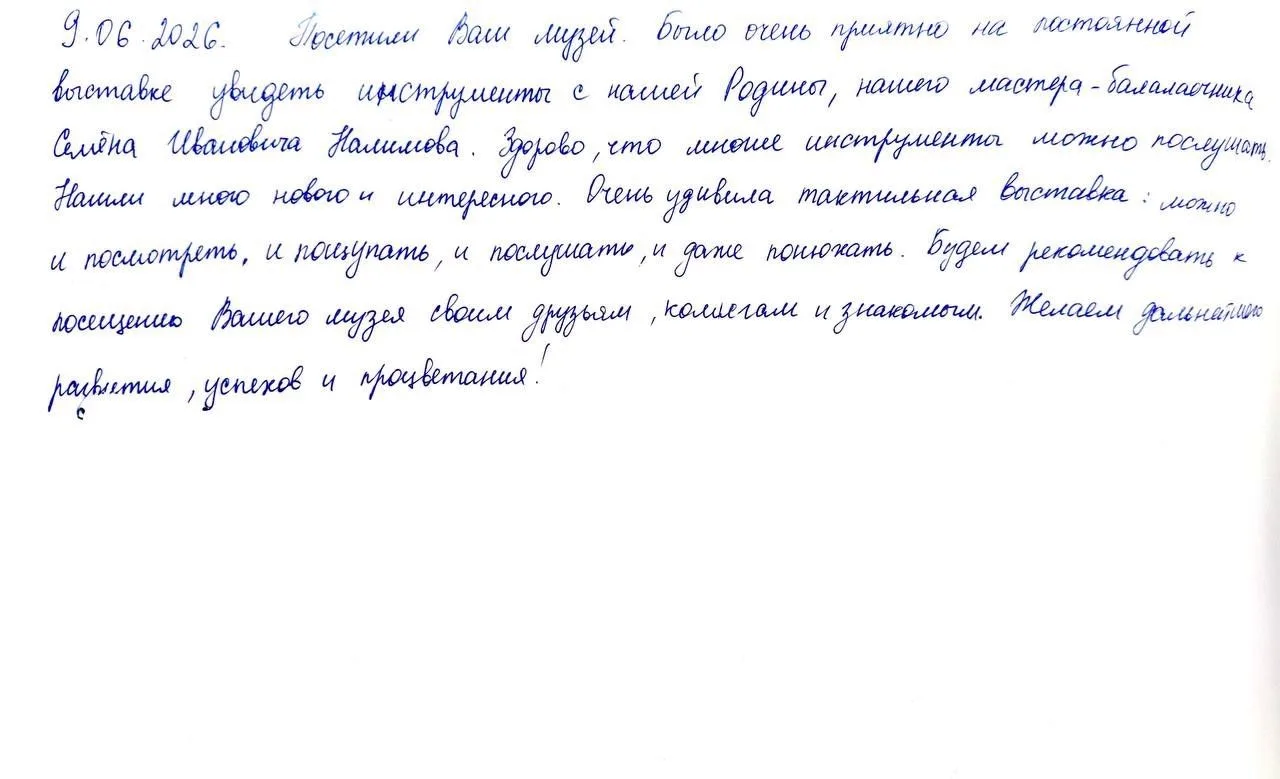 9.06.2026. Посетили Ваш музей. Было очень приятно на постоянной
выставке увидеть инструменты с нашей Родины, нашего мастера-балалаечника
Семёна Ивановича Налимова. Здорово, что многие инструменты можно послушать.
Нашли много нового и интересного. Очень удивила тактильная выставка: можно
и посмотреть, и пощупать, и послушать, и даже понюхать. Будем рекомендовать к
посещению Вашего музея своим друзьям, коллегам и знакомым. Желаем дальнейшего
развития, успехов и процветания!